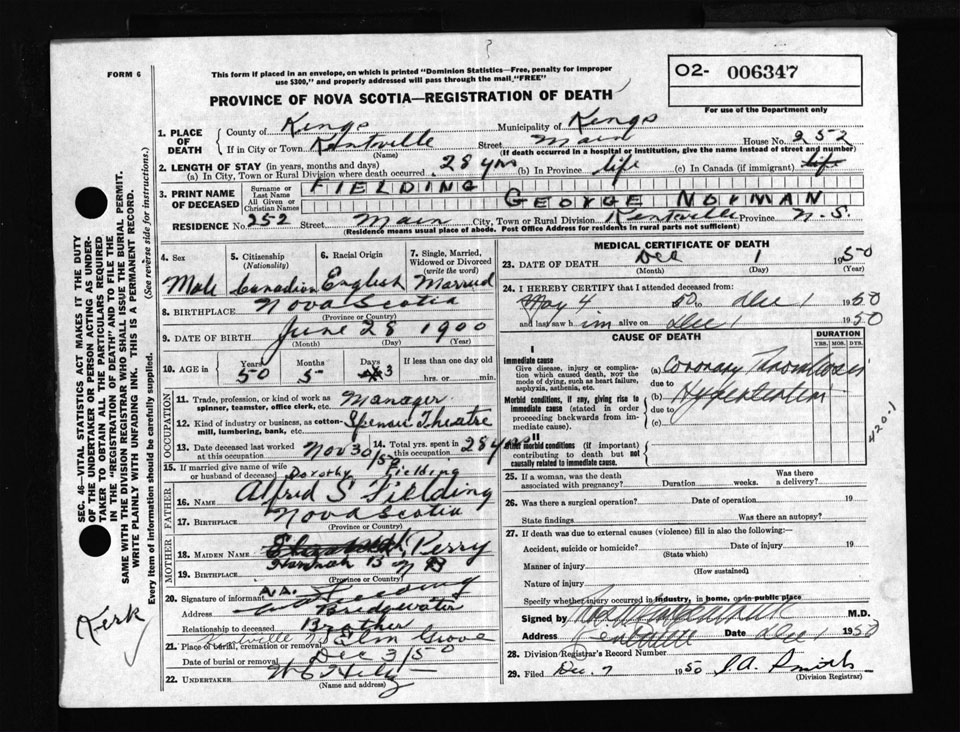 FORM 6
This form if placed in an envelope, on which is printed "Dominion Statistics—Free, penalty for improper
use $300," and properly addressed will pass through the mail, "FREE"
O2- 006347
For use of the Department only
PROVINCE OF NOVA SCOTIA—REGISTRATION OF DEATH
1. PLACE OF DEATH
County of Kings Municipality of Kings
If in City or Town Kentville Street Main House No. 252
(Name) (If death occurred in a hospital or institution, give the name instead of street and number)
2. LENGTH OF STAY (in years, months and days)
(a) In City, Town or Rural Division where death occurred 28 yrs (b) In Province life (c) In Canada (if immigrant) life
3. PRINT NAME OF DECEASED
Surname or Last Name FIELDING
All Given or Christian Names GEORGE NORMAN
RESIDENCE No. 252 Street Main City, Town or Rural Division Kentville Province N.S.
(Residence means usual place of abode. Post Office Address for residents in rural parts not sufficient)
4. Sex 5. Citizenship (Nationality) 6. Racial Origin 7. Single, Married, Widowed or Divorced (write the word)
Male Canadian English Married
8. BIRTHPLACE Nova Scotia
(Province or Country)
9. DATE OF BIRTH June 28 1900
(Month) (Day) (Year)
10. AGE in Years Months Days If less than one day old
50 5 3 hrs. or min.
OCCUPATION
11. Trade, profession, or kind of work as spinner, teamster, office clerk, etc. Manager
12. Kind of industry or business, as cotton-mill, lumbering, bank, etc. Theatre
13. Date deceased last worked at this occupation Nov 30/50 14. Total yrs. spent in this occupation 28 yrs
15. If married give name of wife or husband of deceased Dorothy Fielding
FATHER
16. Name Alfred S Fielding
17. BIRTHPLACE Nova Scotia
(Province or Country)
MOTHER
18. MAIDEN NAME Elizabeth Perry
Hannah B
19. BIRTHPLACE N S
(Province or Country)
20. Signature of informant Fielding
Address Bridgewater
Relationship to deceased Brother
21. Place of burial, cremation or removal Kentville Elm Grove
Date of burial or removal Dec 3/50
22. UNDERTAKER
MEDICAL CERTIFICATE OF DEATH
23. DATE OF DEATH Dec 1 1950
(Month) (Day) (Year)
24. I HEREBY CERTIFY that I attended deceased from:
May 4 50 to Dec 1 1950
and last saw him alive on Dec 1 1950
CAUSE OF DEATH DURATION
YRS. MOS. DYS.
I
Immediate cause
Give disease, injury or complication which caused death, not the mode of dying, such as heart failure, asphyxia, asthenia, etc.
(a) Coronary Thrombosis
due to
Morbid conditions, if any, giving rise to immediate cause (stated in order proceeding backwards from immediate cause).
(b) Hypertension
due to
(c)
II
Other morbid conditions (if important) contributing to death but not causally related to immediate cause.
420.1
25. If a woman, was the death associated with pregnancy? Duration weeks. Was there a delivery?
26. Was there a surgical operation? Date of operation 19
State findings Was there an autopsy?
27. If death was due to external causes (violence) fill in also the following:—
Accident, suicide or homicide? Date of injury 19
(State which)
Manner of injury
(How sustained)
Nature of injury
Specify whether injury occurred in industry, in home, or in public place
Signed by M.D.
Address Kentville Date Dec 1 1950
28. Division Registrar's Record Number
29. Filed Dec. 7 1950
(Division Registrar)
SEC. 46—VITAL STATISTICS ACT MAKES IT THE DUTY
OF THE UNDERTAKER OR PERSON ACTING AS UNDER-
TAKER TO OBTAIN ALL THE PARTICULARS REQUIRED
IN THE "REGISTRATION OF DEATH" AND TO FILE THE
SAME WITH THE DIVISION REGISTRAR WHO SHALL ISSUE THE BURIAL PERMIT.
WRITE PLAINLY WITH UNFADING INK. THIS IS A PERMANENT RECORD.
Every item of information should be carefully supplied. (See reverse side for instructions.)
Kerk